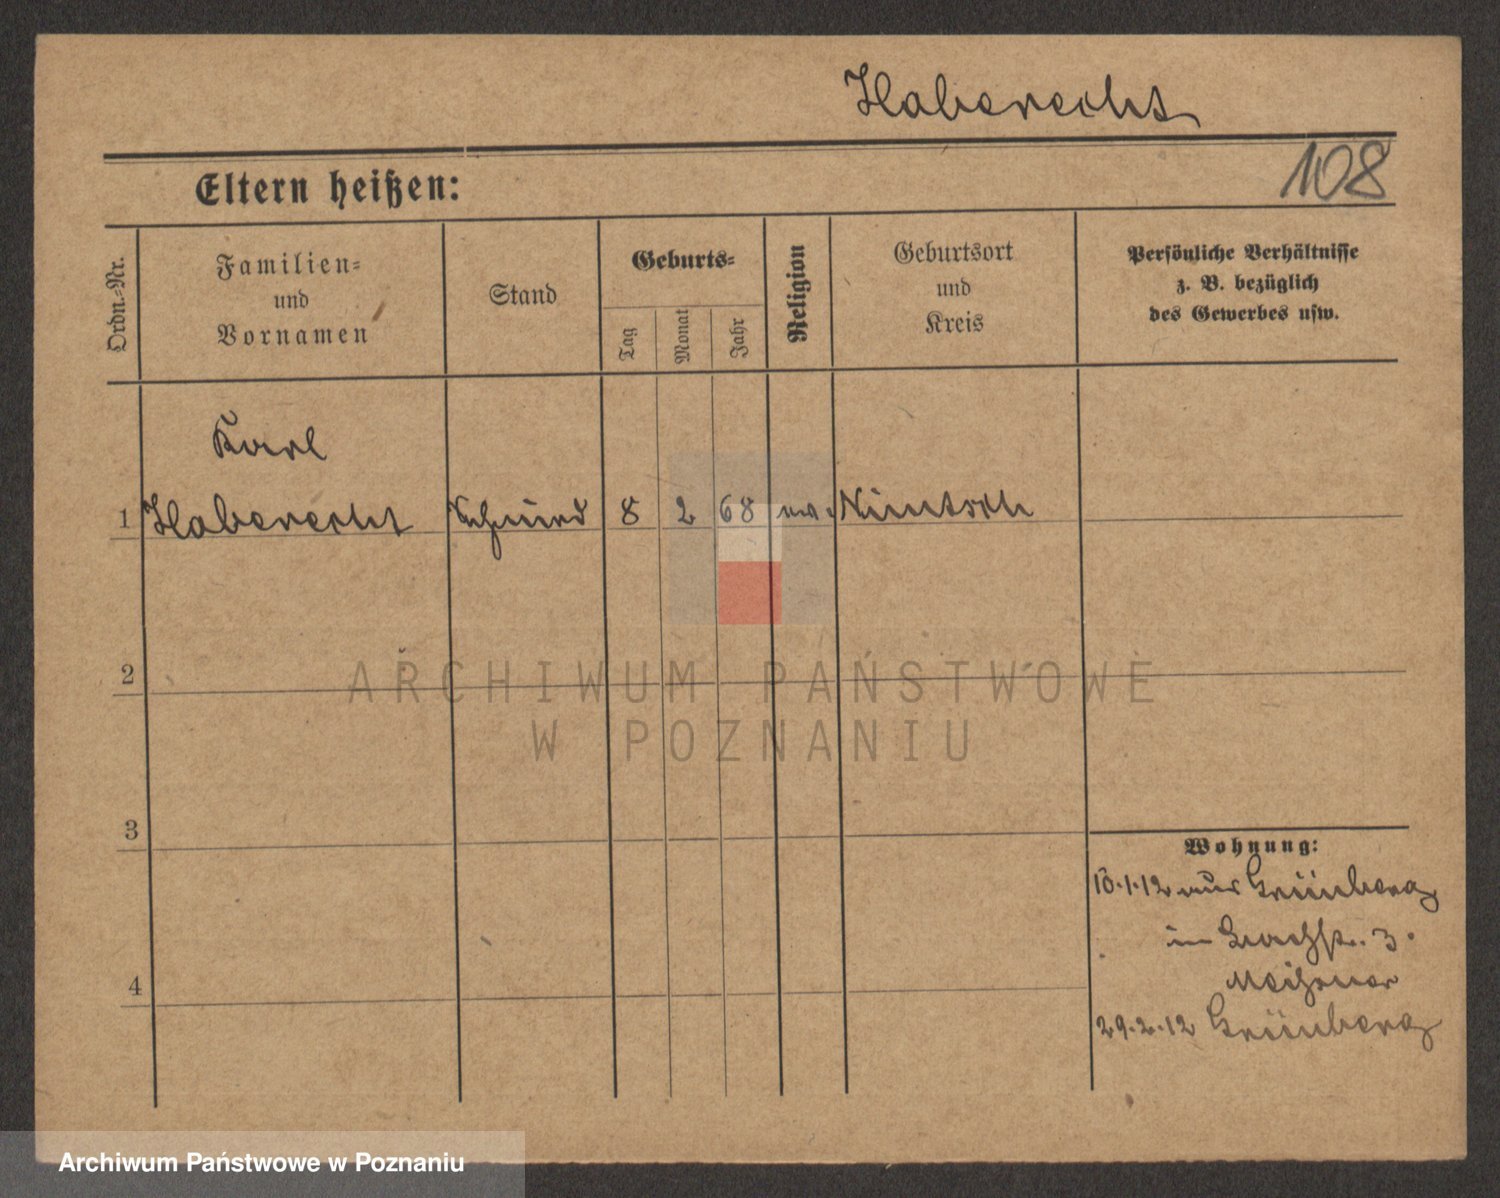 Haberecht
Eltern heißen:
108
Ordn.=Nr.
Familien=
und
Vornamen
Stand
Geburts=
Tag
Monat
Jahr
Religion
Geburtsort
und
Kreis
Persönliche Verhältnisse
z. B. bezüglich
des Gewerbes usw.
Karl
1 Haberecht Schmied 8 2 68 ev. Nimtsch
2
3
4
Wohnung:
10.1.12 aus Grünberg
in 3.
29.2.12 Grünberg
ARCHIWUM PAŃSTWOWE
W POZNANIU
Archiwum Państwowe w Poznaniu